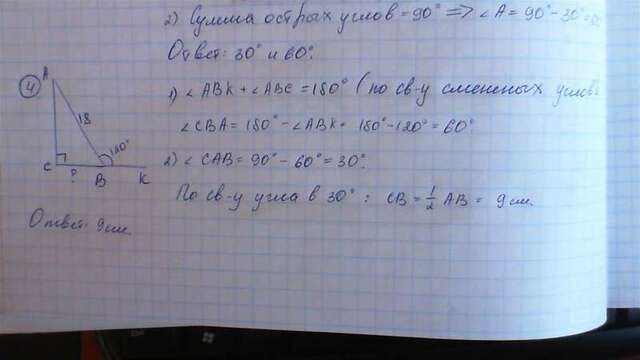 2) Сумма острых углов = 90° => ∠A = 90° - 30° =
Ответ: 30° и 60°.
4
A
18
120°
C
?
B
K
1) ∠ABK + ∠ABC = 180° (по св-у смежных углов
∠CBA = 180° - ∠ABK = 180° - 120° = 60°
2) ∠CAB = 90° - 60° = 30°.
По св-у угла в 30° : CB = 1/2 AB = 9 см.
Ответ: 9 см.